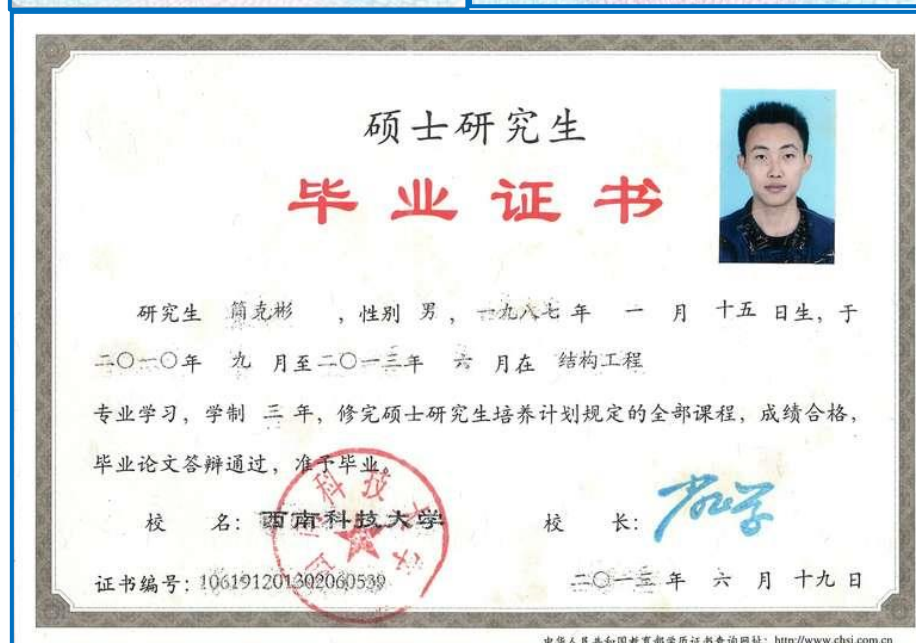 硕士研究生
毕业证书
研究生 简克彬 ，性别 男，一九八七年 一 月 十五 日生，于
二〇一〇年 九 月至二〇一三年 六 月在 结构工程
专业学习，学制 三 年，修完硕士研究生培养计划规定的全部课程，成绩合格，
毕业论文答辩通过，准予毕业。
校 名：西南科技大学
校 长：
证书编号：106191201302060539
二〇一三年 六 月 十九 日
中华人民共和国教育部学历证书查询网址：http://www.chsi.com.cn